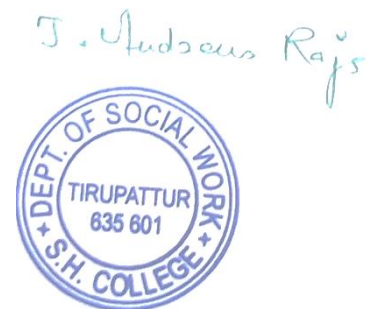 J. Raj
DEPT. OF SOCIAL WORK
TIRUPATTUR
635 601
★ S.H. COLLEGE ★